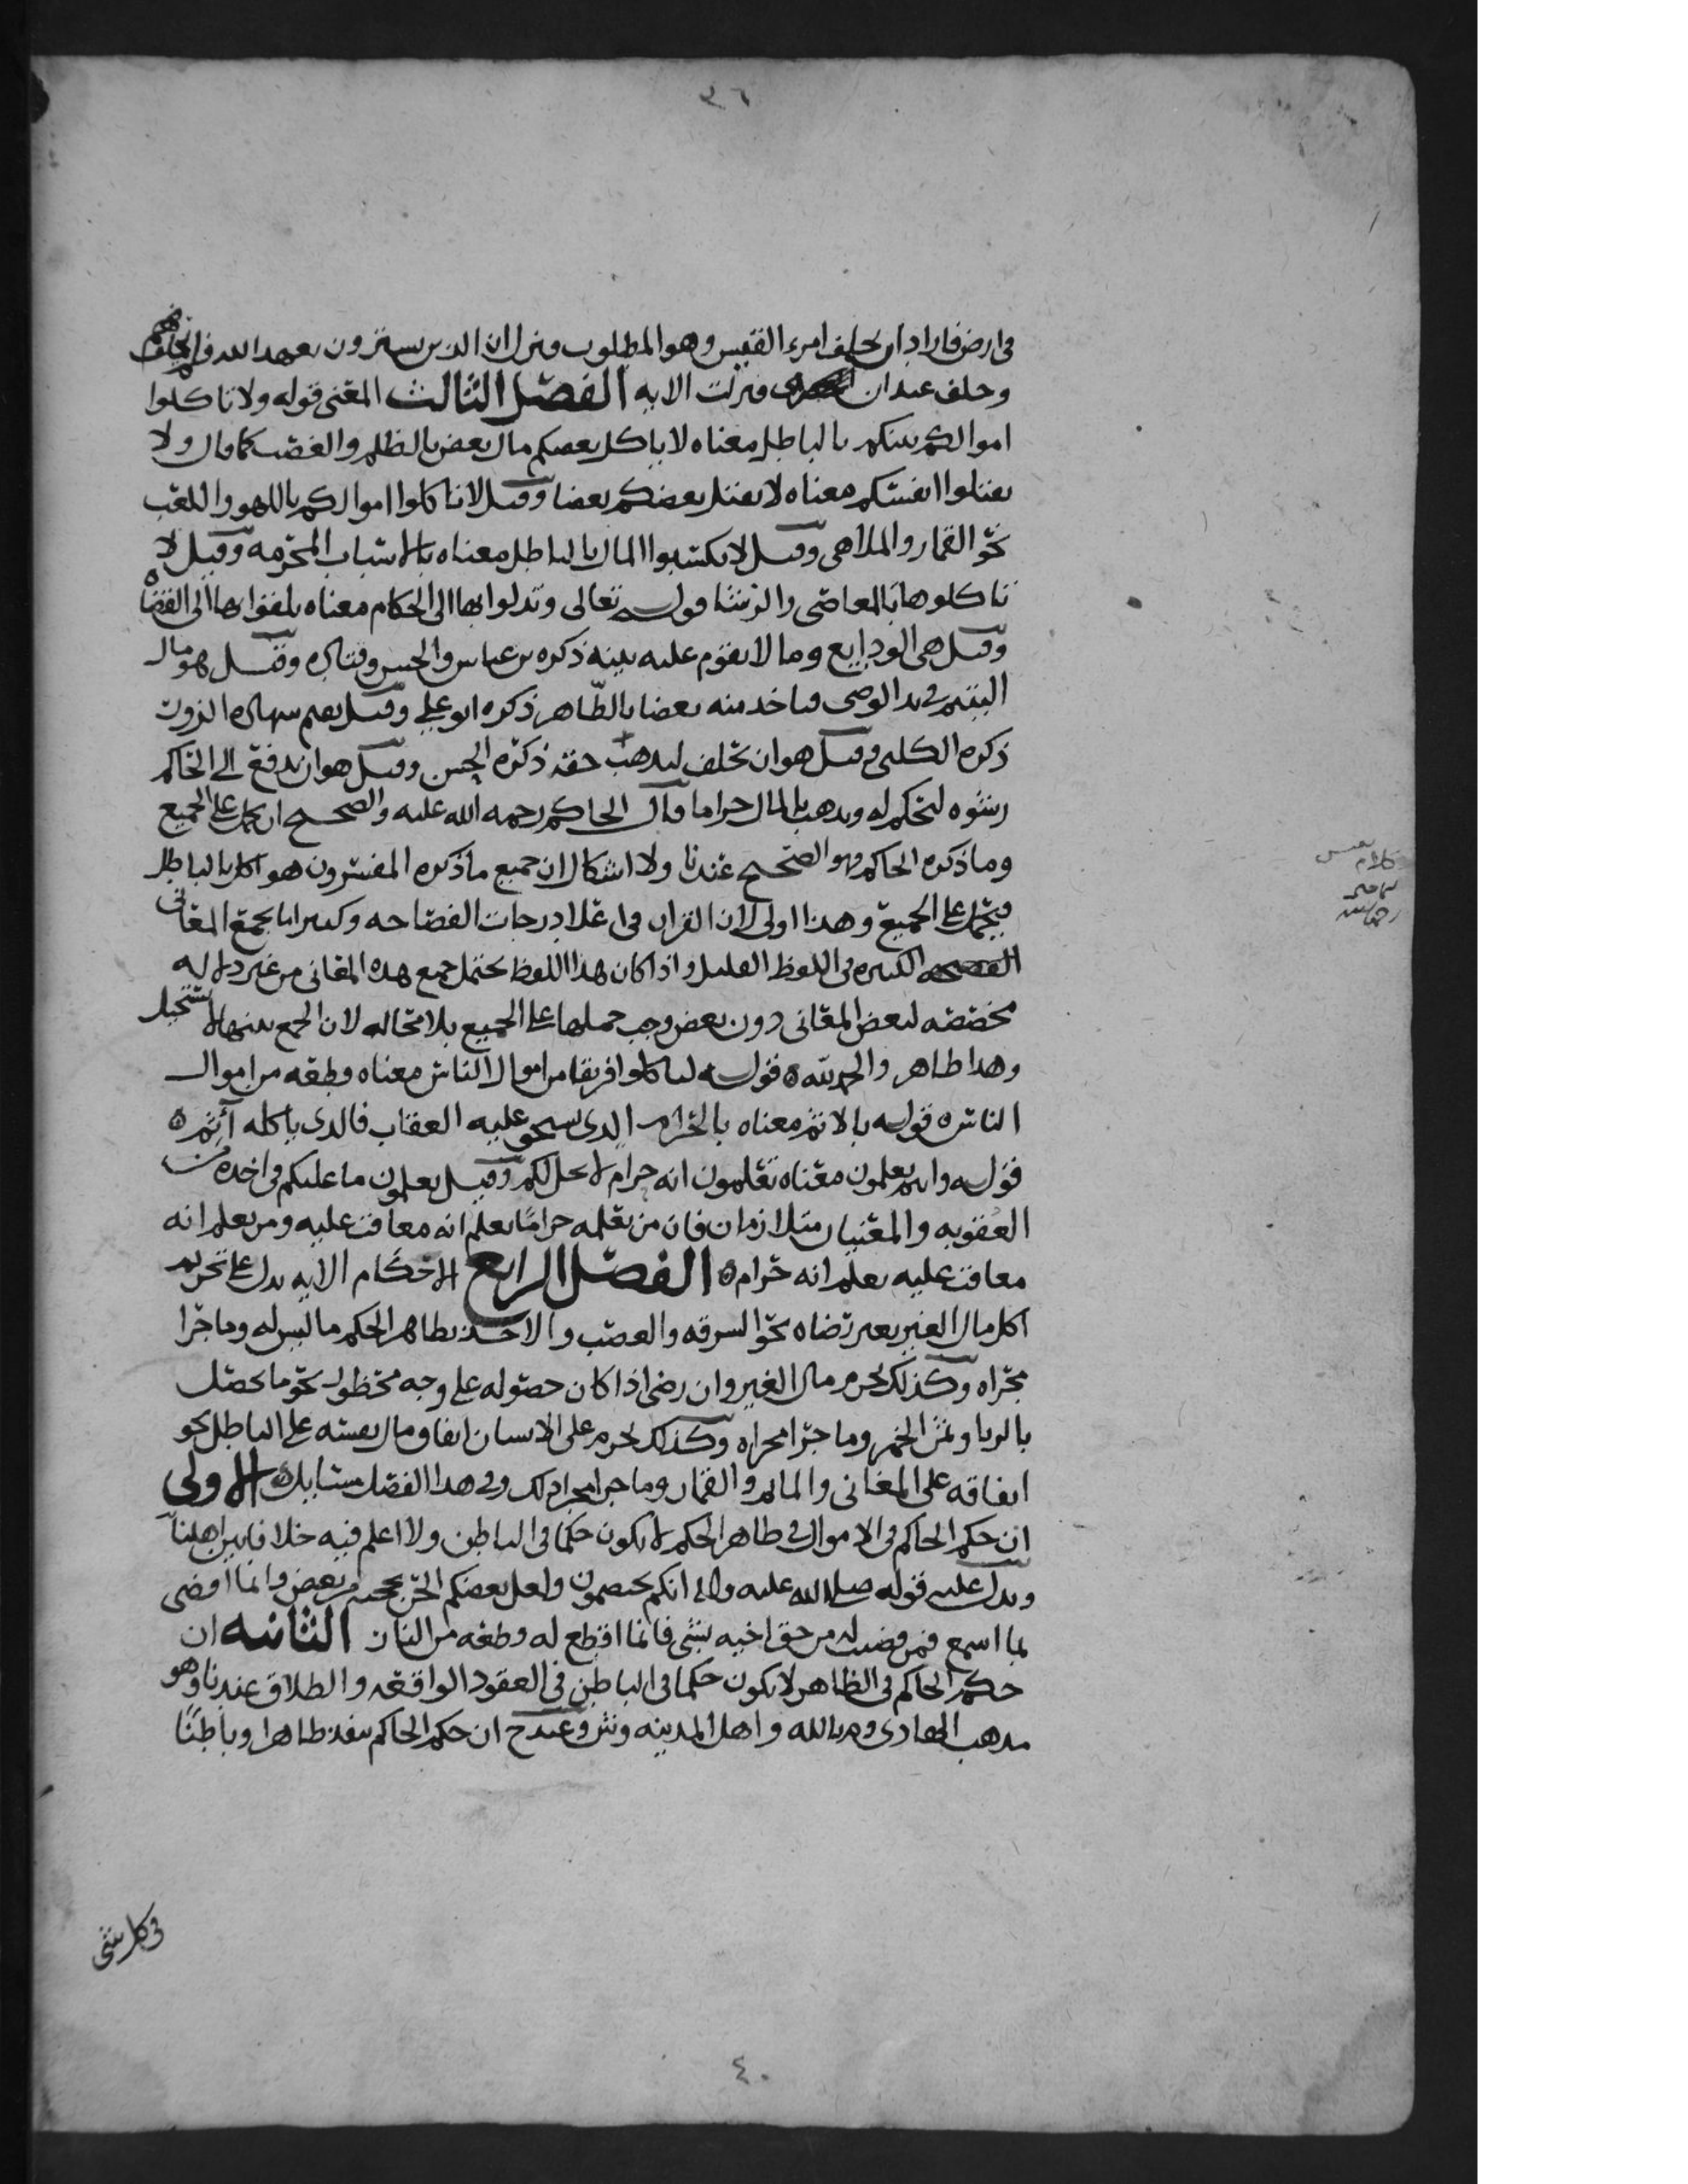 ٣٦
في ارض فاراد ان يحلف امرء القيس وهو المطلوب فنزل ان الذين يشترون بعهد الله فلم يحلف
وحلف عبدان فنزلت الايه الفصل الثالث المعنى قوله ولا تاكلوا
اموالكم بينكم بالباطل معناه لا ياكل بعضكم مال بعض بالظلم والغصب كما قال ولا
تقتلوا انفسكم معناه لا يقتل بعضكم بعضا وقيل لا تاكلوا اموالكم باللهو واللعب
نحو القمار والملاهي وقيل لا تكتسبوا المال بالباطل معناه بالاسباب المحرمه وقيل لا
تاكلوها بالمعاصي والرشا قوله تعالى وتدلوا بها الى الحكام معناه تلقوا بها الى القضاه
وقيل هي الودايع وما لا يقوم عليه بينه ذكره بن عباس والحسن وقتاده وقيل هو مال
اليتيم في يد الوصي فياخذ منه بعضا بالظاهر ذكره ابو علي وقيل يقيم شهاده الزور
ذكره الكلبي وقيل هو ان يحلف ليذهب حقه ذكره الحسن وقيل هو ان يدفع الى الحاكم
رشوه ليحكم له ويذهب بالمال حراما قال الحاكم رحمه الله عليه والصحيح ان يحمل على الجميع
وما ذكره الحاكم فهو الصحيح عندنا ولا اشكال ان جميع ما ذكره المفسرون هو اكل بالباطل
فيحمل على الجميع وهذا اولى لان القران في اعلا درجات الفصاحه وكثيرا ما يجمع المعاني
الكثيره في اللفظ القليل واذا كان هذا اللفظ يحتمل جميع هذه المعاني من غير دلاله
مخصصه لبعض المعاني دون بعض وجب حملها على الجميع بلا محاله لان الجمع بينها لا يستحيل
وهذا ظاهر والحمد لله ه قوله لتاكلوا فريقا من اموال الناس معناه وطعه من اموال
الناس ه قوله بالاثم معناه بالحرام الذي يستحق عليه العقاب فالذي ياكله آثم ه
قوله وانتم تعلمون معناه تعلمون انه حرام لا يحل لكم وقيل تعلمون ما عليكم في اخذه من
العقوبه والمعنيان متلازمان فان من يعلمه حراما يعلم انه معاقب عليه ومن يعلم انه
معاقب عليه يعلم انه حرام ه الفصل الرابع الاحكام الايه يدل على تحريم
اكل مال الغير بغير رضاه نحو السرقه والغصب والاخذ بظاهر الحكم ما ليس له وما جرا
مجراه وكذلك يحرم مال الغير وان رضى اذا كان حصوله على وجه محظور نحو ما يحصل
بالربا وثمن الخمر وما جرا مجراه وكذلك يحرم على الانسان انفاق مال نفسه على الباطل نحو
انفاقه على المغاني والقمار وما جرا مجرا ذلك وفي هذا الفصل مسايل ه الاولى
ان حكم الحاكم في الاموال في ظاهر الحكم لا يكون حكما في الباطن ولا اعلم فيه خلافا بين اهلنا
ويدل عليه قوله صلى الله عليه واله انكم تختصمون ولعل بعضكم الحن بحجته من بعض وانما اقضي
بما اسمع فمن قضيت له من حق اخيه بشي فانما اقطع له وطعه من النار الثانيه ان
حكم الحاكم في الظاهر لا يكون حكما في الباطن في العقود الواقعه والطلاق عندنا وهو
مذهب الهادي وم بالله واهل المدينه وش وعند ح ان حكم الحاكم ينفذ ظاهرا وباطنا
في كل شي
٤٠